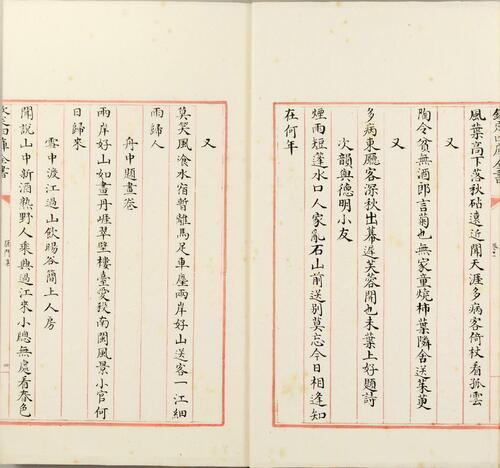 風葉高下落秋砧遠近聞天涯多病客倚杖看孤雲
又
陶令貧無酒郎言菊也無家童燒柿葉隣舍送茱萸
又
多病東廳客深秋出幕遲芙蓉開也未葉上好題詩
次韻與德明小友
煙雨短蓬水口人家亂石山前送別莫忘今日相逢知
在何年
又
莫笑風飡水宿暫離馬足車塵兩岸好山送客一江細
雨歸人
舟中題畫卷
兩岸好山如畫丹崖翠壁樓臺愛我南閩風景小官何
日歸來
雪中渡江過山飲賜谷簡上人房
聞說山中新酒熟野人乘興過江來小牕無處看春色
雁門集